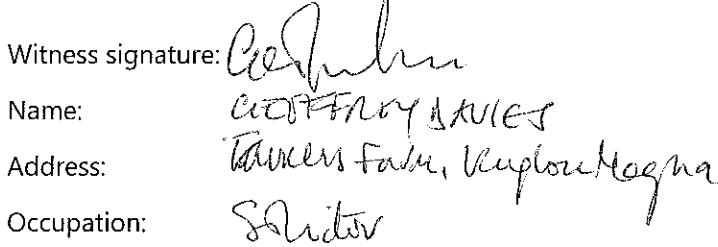 Witness signature:
Name: GEOFFROY DAVIES
Address: Farm, Magna
Occupation: Solicitor